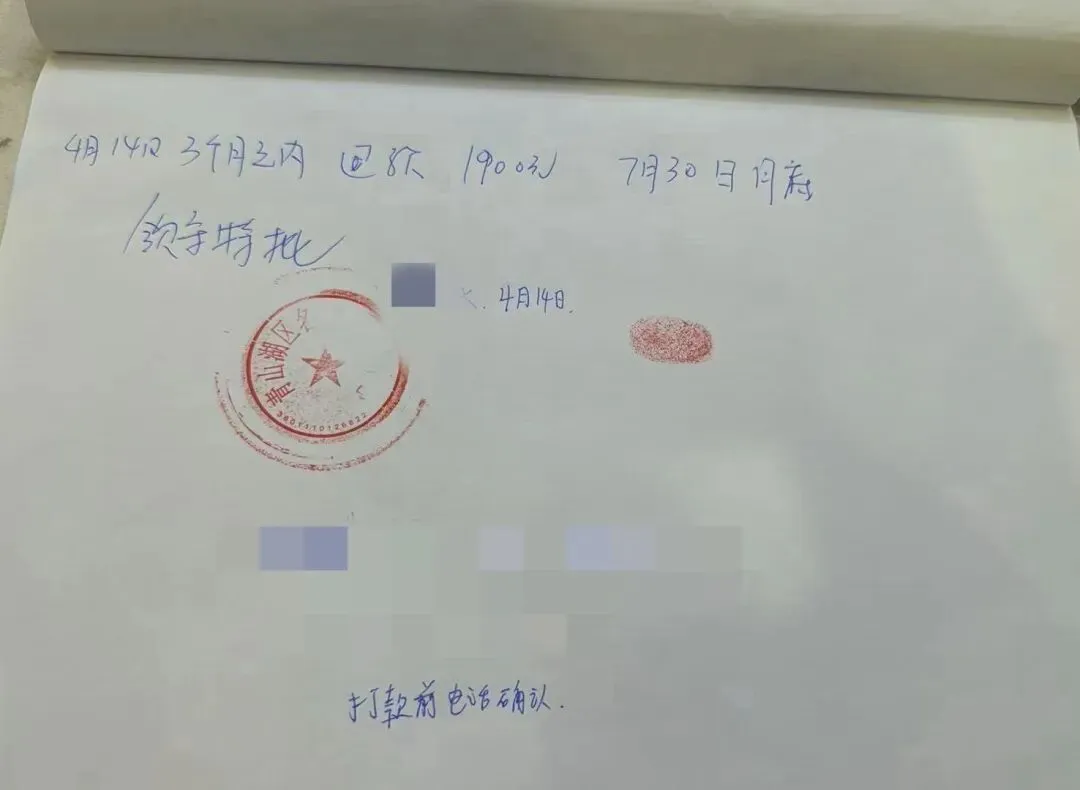 4月14日 3个月之内 退款 1900元 7月30日月底
领导特批
4月14日.
青山湖区名
打款前电话确认.